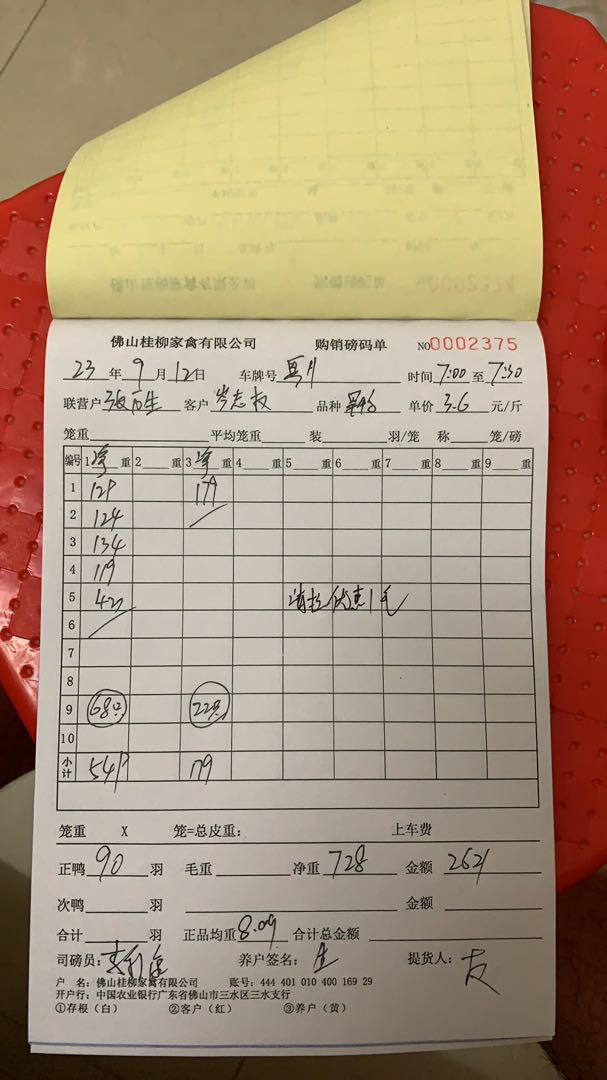 佛山桂柳家禽有限公司 购销磅码单 NO0002375
23年9月12日 车牌号 时间7:00至7:30
联营户 客户 品种 单价3.6元/斤
笼重 平均笼重 装 羽/笼 称 笼/磅
编号 1净重 2 重 3净重 4 重 5 重 6 重 7 重 8 重 9 重
1 129 179
2 124
3 134
4 119
5
6
7
8
9 68只 22只
10
小计 549 179
笼重 X 笼=总皮重: 上车费
正鸭90羽 毛重 净重728 金额2621
次鸭 羽 金额
合计 羽 正品均重8.09 合计总金额
司磅员: 养户签名:生 提货人:
户 名:佛山桂柳家禽有限公司 账号:444 401 010 400 169 29
开户行:中国农业银行广东省佛山市三水区三水支行
①存根(白) ②客户(红) ③养户(黄)